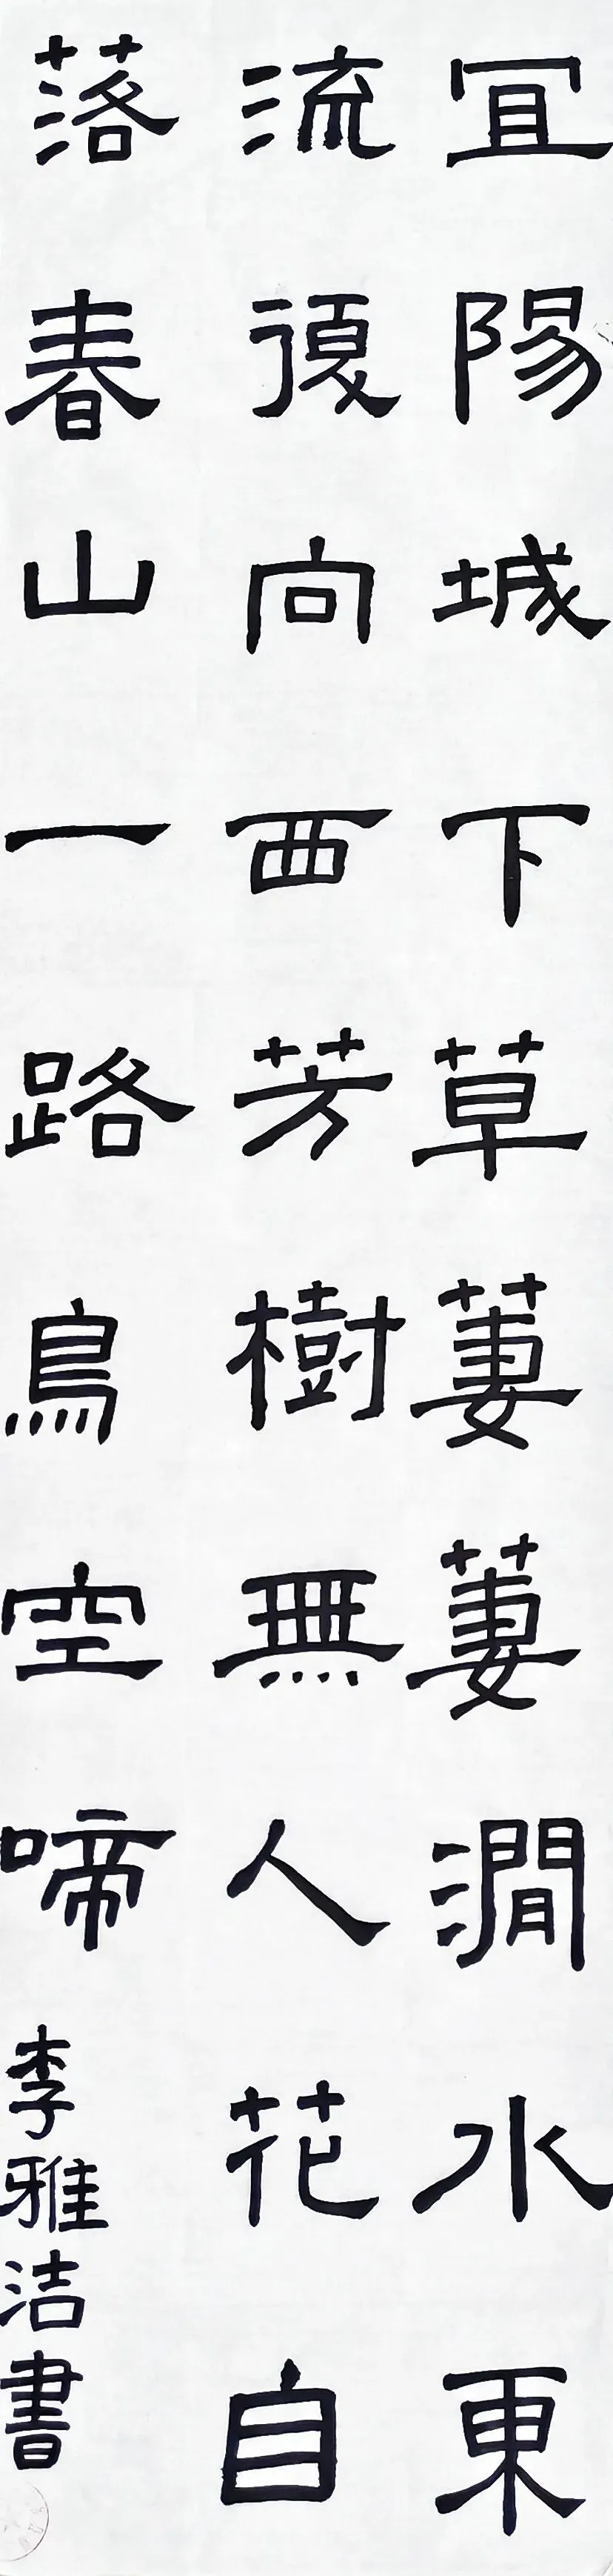 宜陽城下草萋萋澗水東
流復向西芳樹無人花自
落春山一路鳥空啼
李雅洁書